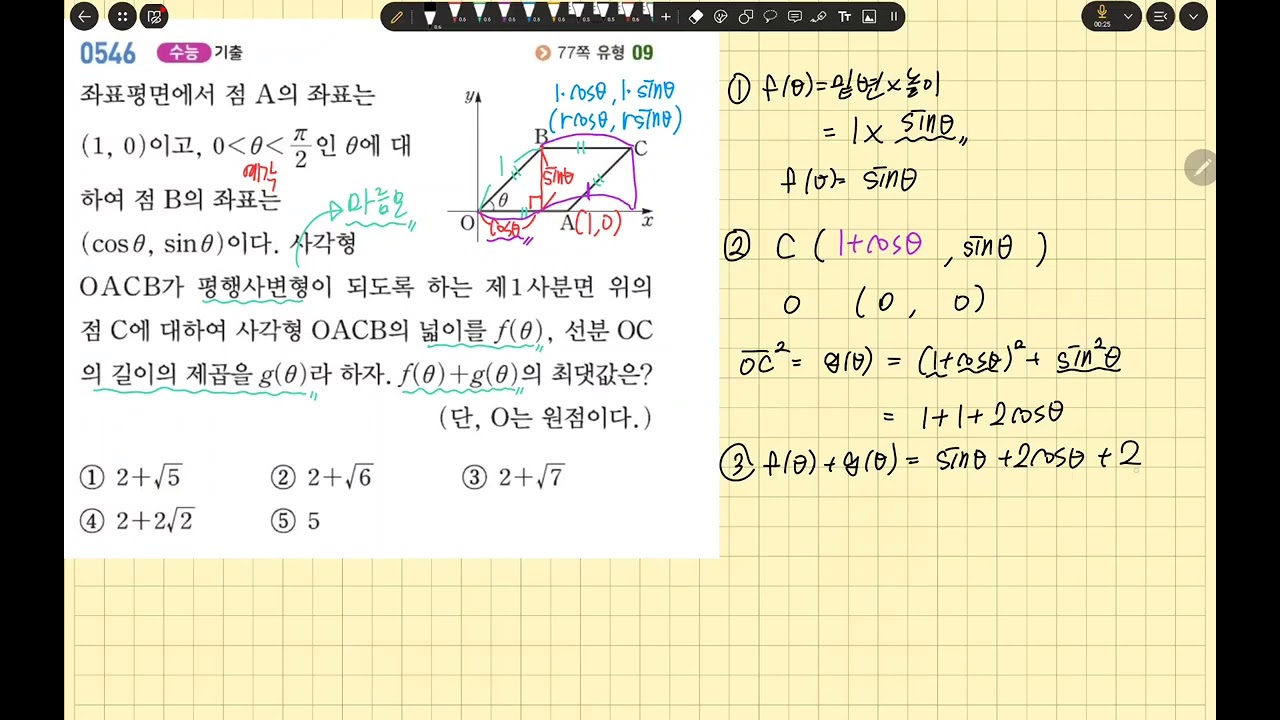 00:25
0546 수능 기출 77쪽 유형 09
좌표평면에서 점 A의 좌표는
(1, 0)이고, 0<θ<π/2인 θ에 대
예각
하여 점 B의 좌표는
마름모
(cosθ, sinθ)이다. 사각형
OACB가 평행사변형이 되도록 하는 제1사분면 위의
점 C에 대하여 사각형 OACB의 넓이를 f(θ), 선분 OC
의 길이의 제곱을 g(θ)라 하자. f(θ)+g(θ)의 최댓값은?
(단, O는 원점이다.)
① 2+√5 ② 2+√6 ③ 2+√7
④ 2+2√2 ⑤ 5
1·cosθ, 1·sinθ
(rcosθ, rsinθ)
y
B C
1 sinθ
θ
O cosθ A(1,0) x
① f(θ)=밑변×높이
= 1× sinθ
f(θ)= sinθ
② C (1+cosθ, sinθ)
O (0, 0)
OC² = g(θ) = (1+cosθ)²+ sin²θ
= 1+1+2cosθ
③ f(θ)+g(θ)= sinθ+2cosθ+2